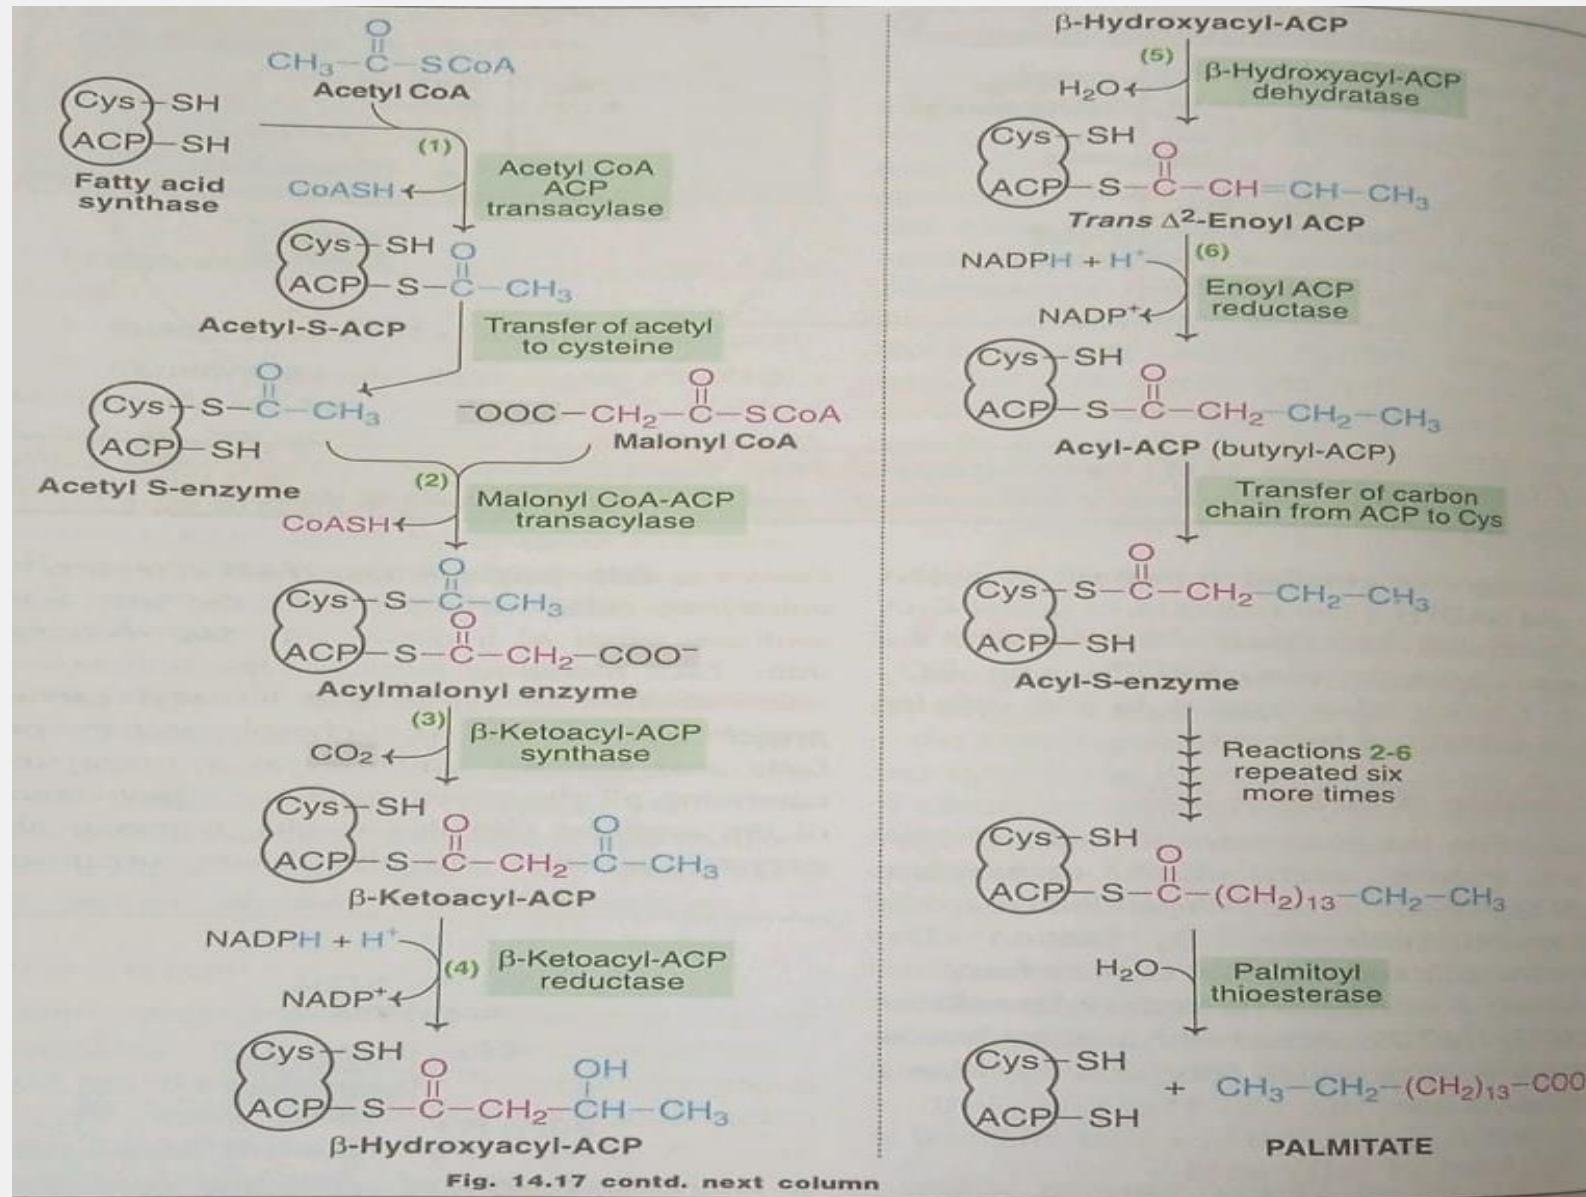 O
CH₃–C–SCoA
Acetyl CoA
Cys–SH
ACP–SH
Fatty acid
synthase
(1)
CoASH
Acetyl CoA
ACP
transacylase
Cys–SH
O
ACP–S–C–CH₃
Acetyl-S-ACP
Transfer of acetyl
to cysteine
O
Cys–S–C–CH₃
ACP–SH
Acetyl S-enzyme
O
⁻OOC–CH₂–C–SCoA
Malonyl CoA
(2)
CoASH
Malonyl CoA-ACP
transacylase
O
Cys–S–C–CH₃
O
ACP–S–C–CH₂–COO⁻
Acylmalonyl enzyme
(3)
CO₂
β-Ketoacyl-ACP
synthase
Cys–SH
O O
ACP–S–C–CH₂–C–CH₃
β-Ketoacyl-ACP
NADPH + H⁺
(4)
NADP⁺
β-Ketoacyl-ACP
reductase
Cys–SH
O OH
ACP–S–C–CH₂–CH–CH₃
β-Hydroxyacyl-ACP
Fig. 14.17 contd. next column
β-Hydroxyacyl-ACP
(5)
H₂O
β-Hydroxyacyl-ACP
dehydratase
Cys–SH
O
ACP–S–C–CH=CH–CH₃
Trans Δ²-Enoyl ACP
(6)
NADPH + H⁺
NADP⁺
Enoyl ACP
reductase
Cys–SH
O
ACP–S–C–CH₂–CH₂–CH₃
Acyl-ACP (butyryl-ACP)
Transfer of carbon
chain from ACP to Cys
O
Cys–S–C–CH₂–CH₂–CH₃
ACP–SH
Acyl-S-enzyme
Reactions 2-6
repeated six
more times
Cys–SH
O
ACP–S–C–(CH₂)₁₃–CH₂–CH₃
H₂O
Palmitoyl
thioesterase
Cys–SH
ACP–SH
+ CH₃–CH₂–(CH₂)₁₃–COO
PALMITATE